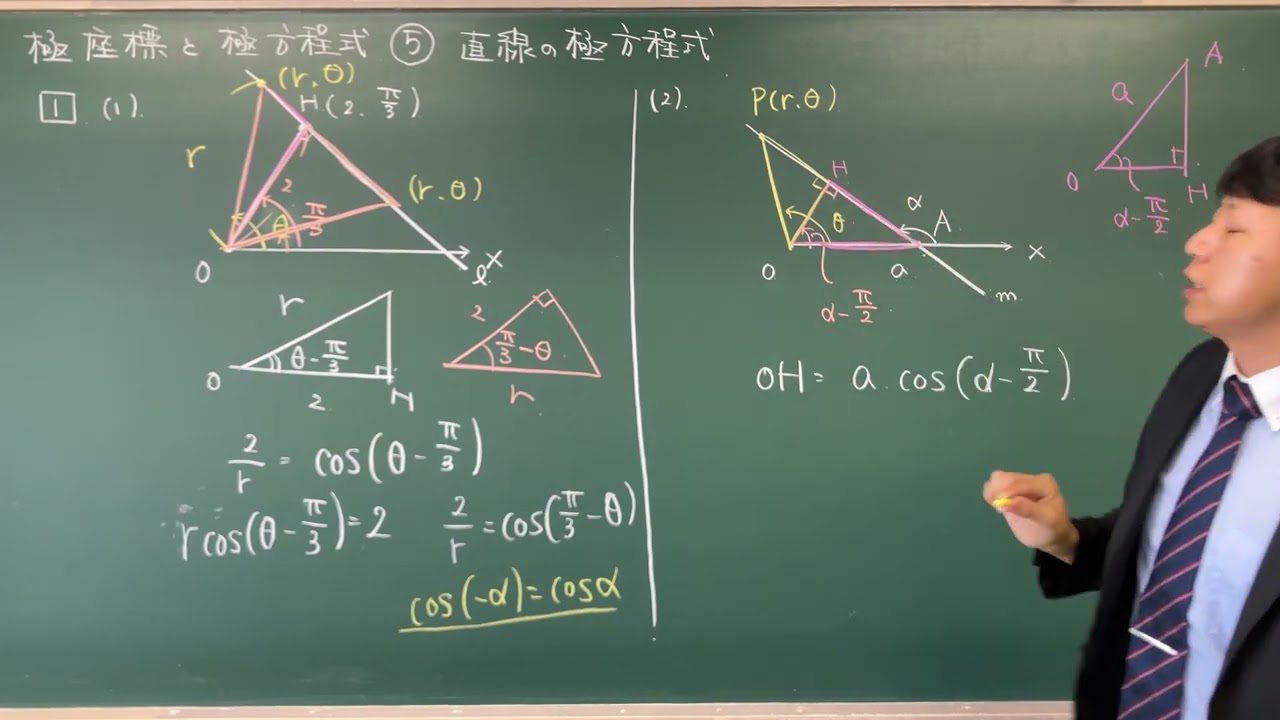 極座標と極方程式 ⑤ 直線の極方程式
1 (1).
(r, θ)
H(2, π/3)
r
2
π/3
θ
(r, θ)
O
x
l
r
θ - π/3
O
2
H
2
π/3 - θ
r
2/r = cos(θ - π/3)
r cos(θ - π/3) = 2
2/r = cos(π/3 - θ)
cos(-α) = cosα
(2).
P(r, θ)
H
θ
α
A
O
a
x
m
α - π/2
OH = a cos(α - π/2)
A
a
O
H
α - π/2